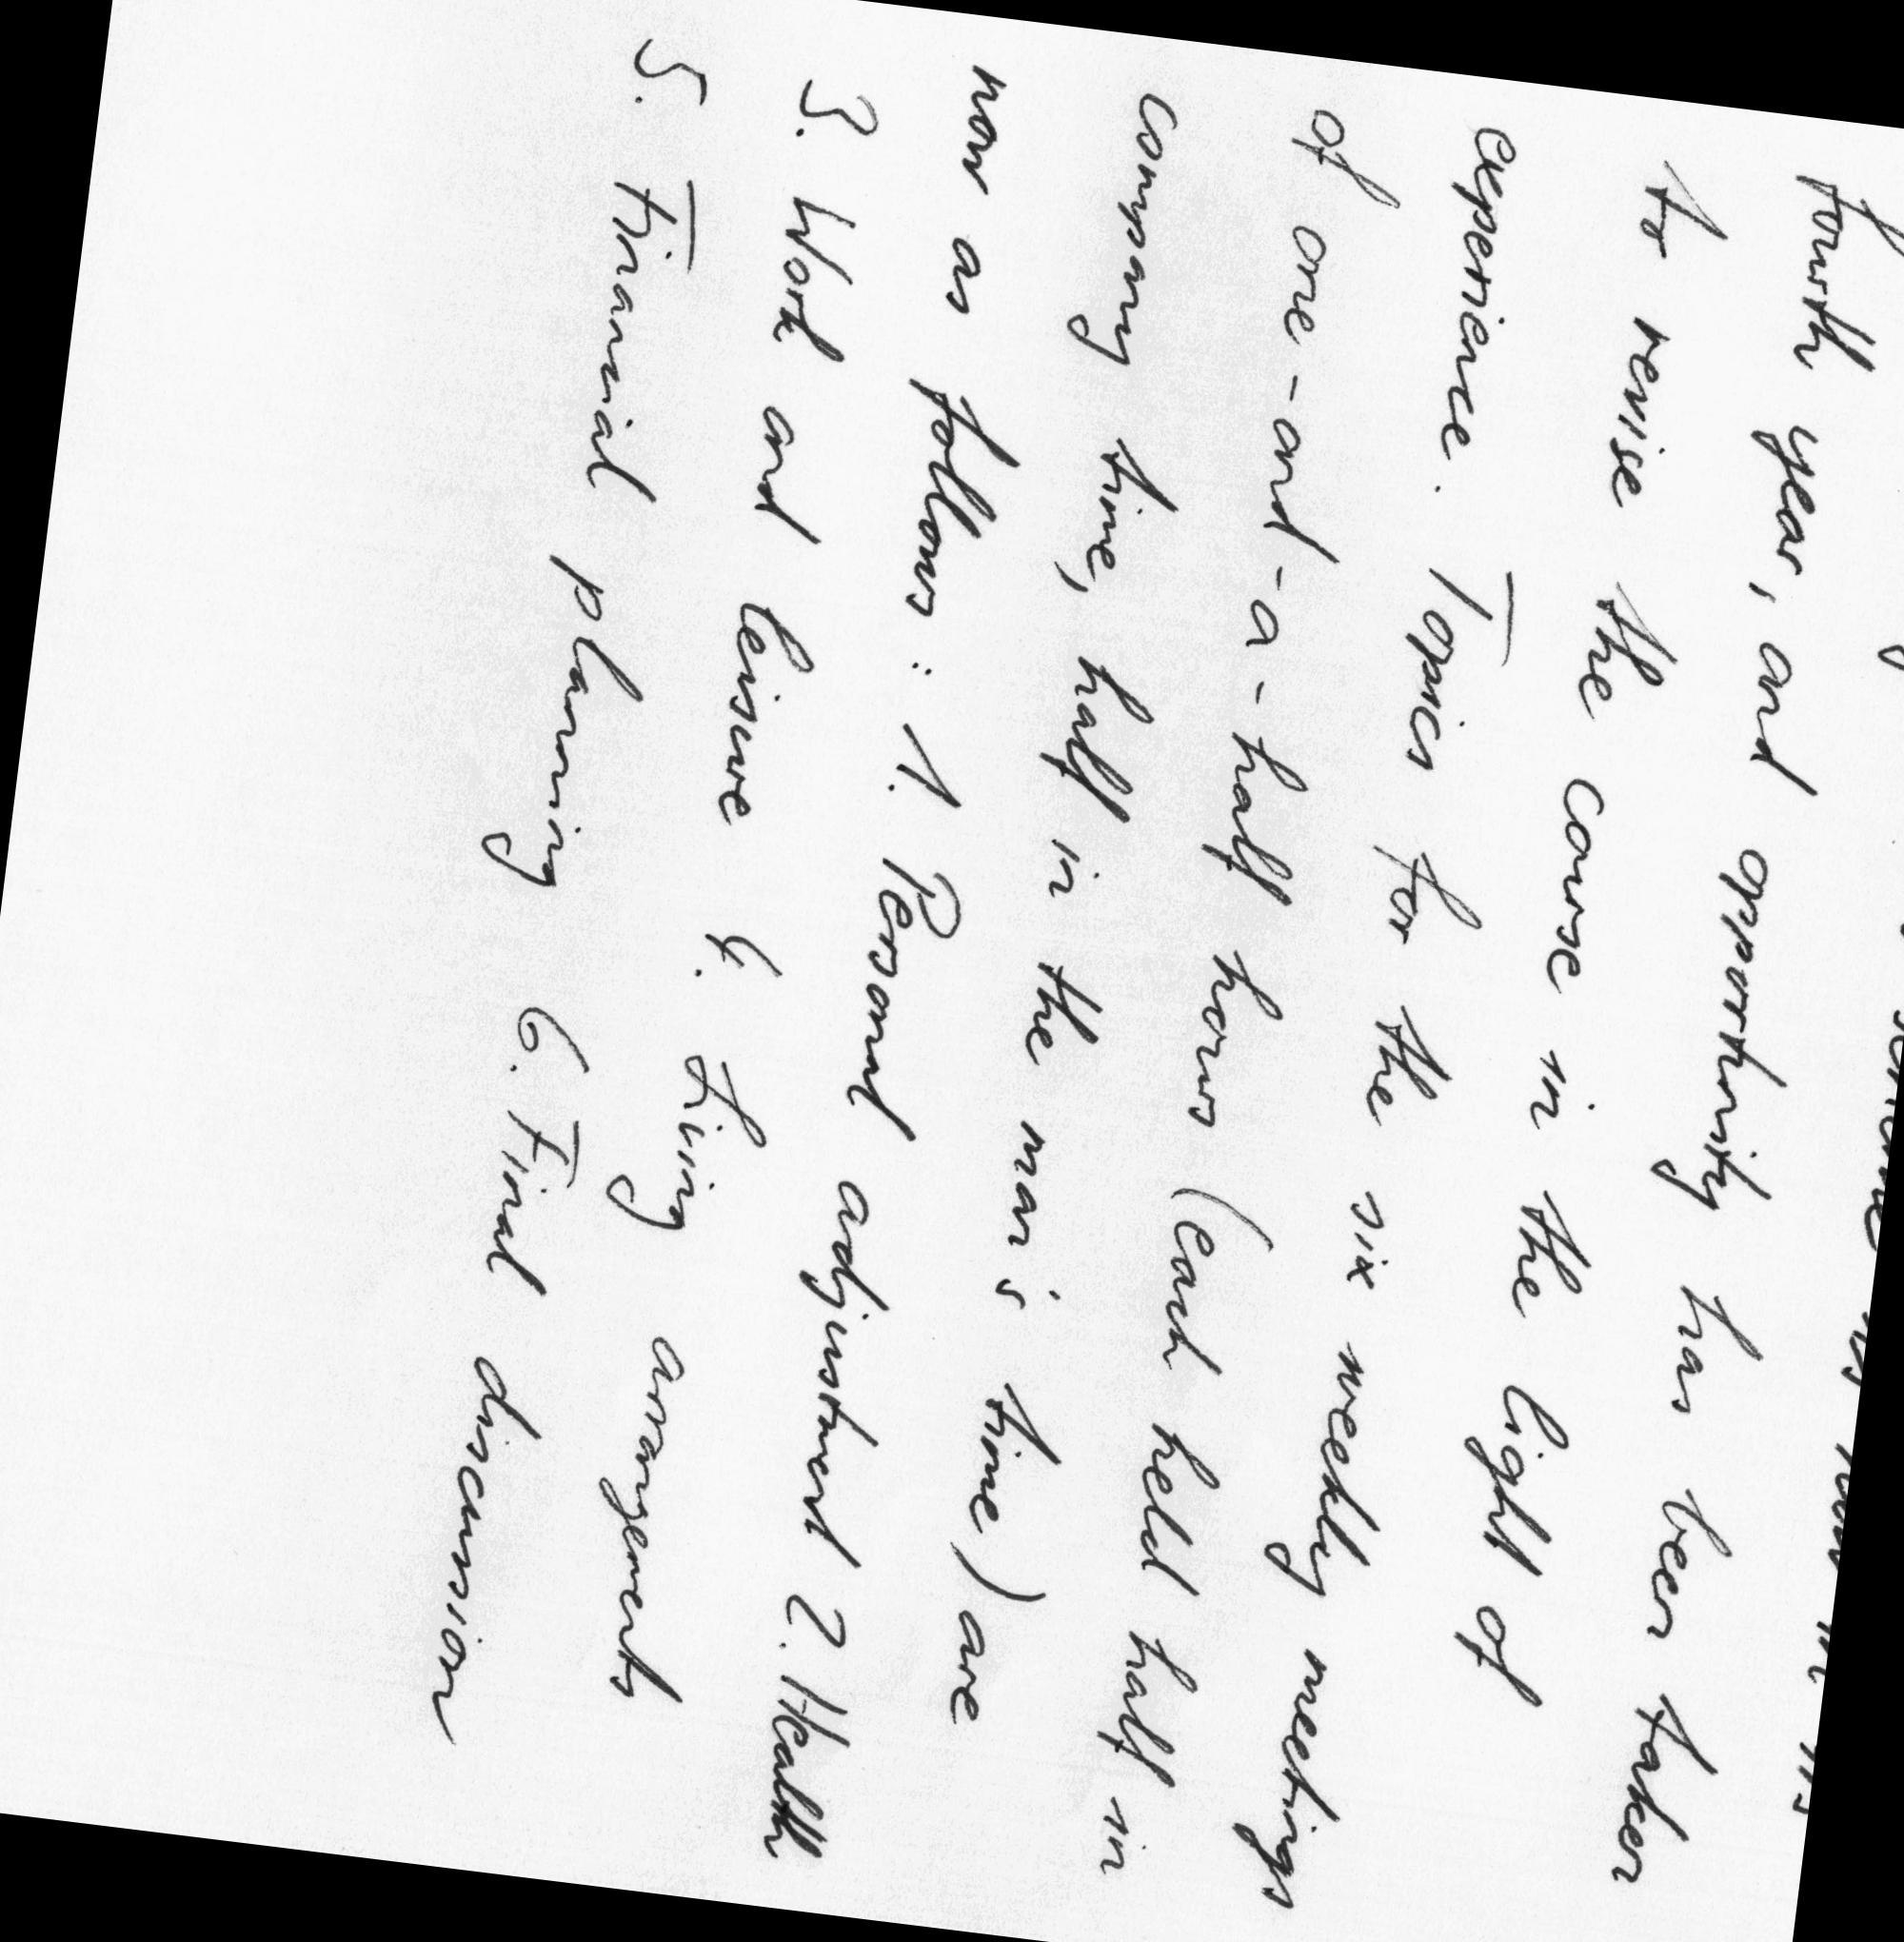 fourth year, and opportunity has been taken
to revise the course in the light of
experience. Topics for the six weekly meetings
of one-and-a-half hours (each held half in
company time, half in the man's time) are
now as follows: 1. Personal adjustment 2. Health
3. Work and leisure 4. Living arrangements
5. Financial planning 6. Final discussion